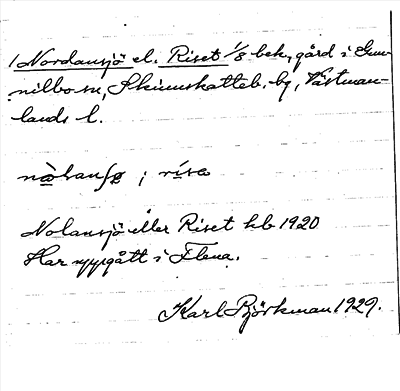 1 Nordansjö el. Riset 1/8 bek. gård i Gun-
nilbo sn, Skinnskatteb. bg, Västman-
lands l.
nolansjö eller Riset kb 1920
Har uppgått i Flena.
Karl Björkman 1929.